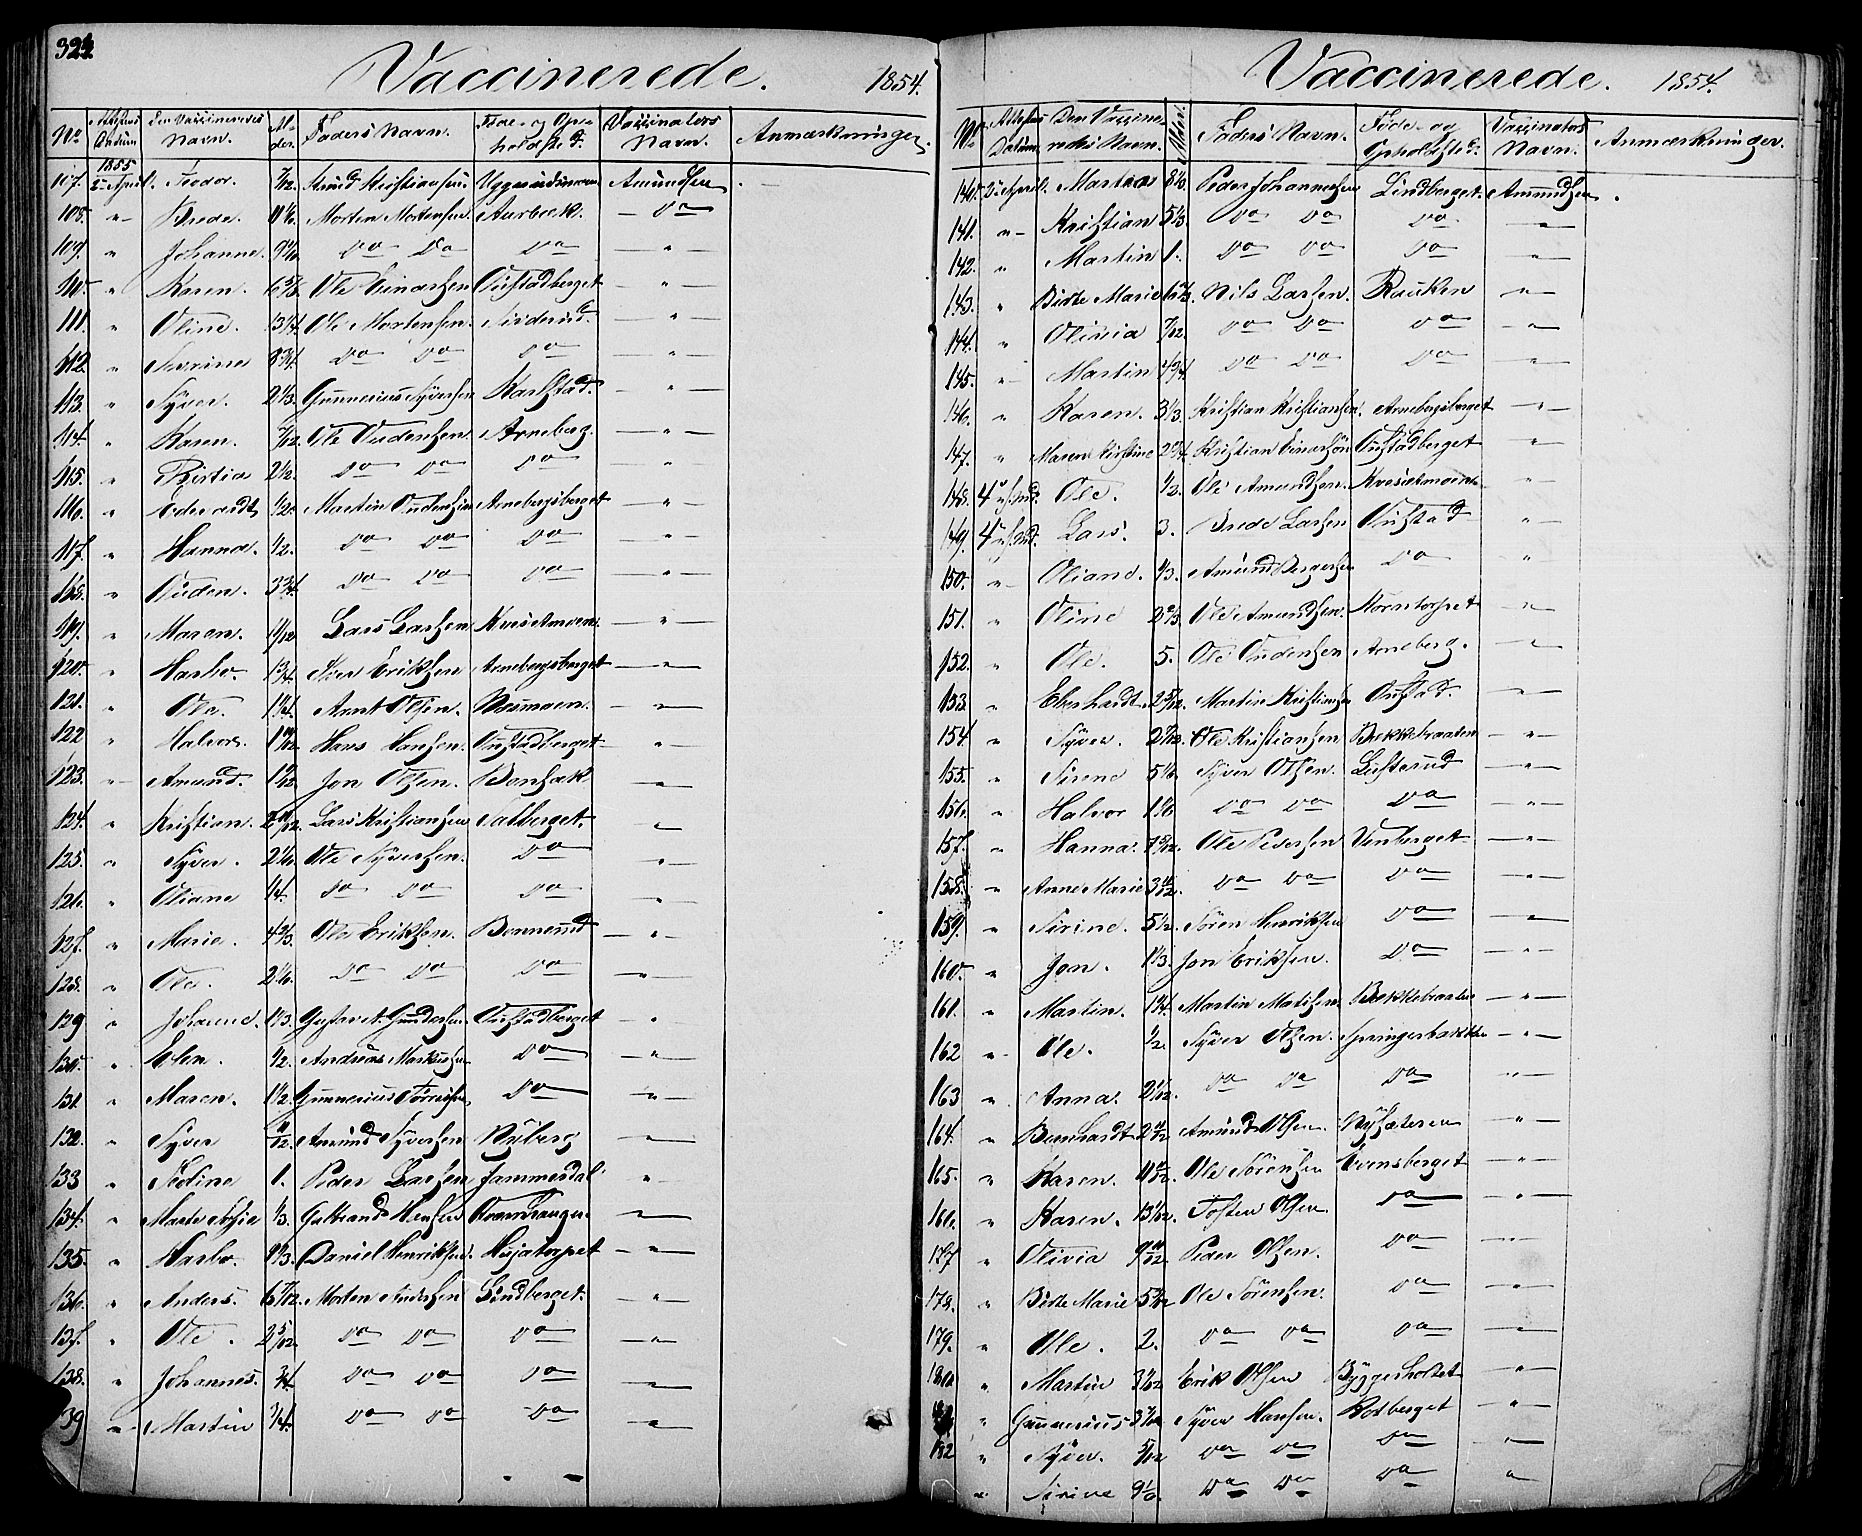 324.
Vaccinerede. 1854.
No Attestens Datum Den Vaxcineredes Navn. Alder. Faders Navn. Føde- og Opholdsted. Vaxcinators Navn. Anmærkninger.
1855
107. 2 April. Teodor. 7/12. Amund Kristiansen Amundsen
108. " Brede. Morten Mortensen. Aurbeck. Do
109. " Johanne. Do Do Do "
110. " Karen. 6 5/6. Ole Einarsen Oustadberget "
111. " Oline. 3 1/4. Ole Mortensen. "
112. " Severine 8 3/4. Do Do Do "
113. " Syver. 2 1/3. Gunnerius Syversen Karlstad. "
114. " Karen. 7/12. Ole Oudensen. Arneberg. "
115. " 2 1/2. Do Do Do "
116. " Edevardt 1/2. Martin Oudensen Arnebergsberget "
117. " Hanna. 1/2. Do Do Do "
118. " Ouden. 3 3/4. Do Do Do "
119. " Maren. 11/12 Lars Larsen Kvesetmoen. "
120. " Harbo. 1 3/4. Iver Eriksen Arnebergsberget "
121. " Ole. 1 1/4. Arnt Olsen. Moumoen. "
122 " Halvor. Hans Hansen. Oustadberget "
123. " Amund. Jon Olsen. Bonsak "
124. " Kristian. Lars Kristiansen Salberget. "
125. " Syver. 2 1/6. Ole Syversen. Do "
126. " Oliane 1/4. Do Do Do "
127. " Marie. 4 2/3. Ole Eriksen. Bennerud "
128. " Ole. 2 1/6. Do Do Do "
129 " Johanne. 1 1/3. Gustav A. Gundersen. Oustadberget "
130. " Elen. 1/2. Andreas Markusen Do "
131. " Maren. 1 1/2. Gunnerius Torresen Do "
132. " Syver 11/12. Amund Syversen Nyberg "
133 " Sedine 1. Peder Larsen Jammerdal "
134. " Marte Sofia 1/3. Gulbrand Hensen "
135. " Harbo. Daniel Henriksen. Hesjatorpet "
136. " Anders. 6 7/12. Morten Andersen Lindberget. "
137. " Ole. 2 5/12. Do Do Do "
138. " Johannes. 3/4. Do Do Do "
139 " Martin 3/4. Do Do Do "
Vaccinerede. 1854.
No Attestens Datum. Den Vaxcineredes Navn. Alder. Faders Navn. Føde- og Opholdsted. Vaxcinators Navn. Anmærkninger.
140. 2 April. Martea 8 1/6. Peder Johannesen Lindberget. Amundsen.
141. " Kristian 5 1/3. Do Do Do "
142. " Martin 1. Do Do Do "
143. " Birte Marie Nils Larsen. Rauken "
144. " Olinia 7/12. Do Do Do "
145. " Martin 4 3/4. Do Do Do "
146. " Karen. 3 1/3. Kristian Kristiansen. Arnebergsberget "
147. " Maren Kirstine 2 3/4. Kristian Einarsen Oustadberget "
148. 4 Ole. 1/2. Ole Amundsen. Kvesetmoen "
149. 4 Lars. 3. Brede Larsen Oustad "
150. " Oliane. 1/3. Amund Bergersen Do "
151. " Oline 2 2/3. Ole Amundsen. Korntorpet "
152. " Ole. 5. Ole Oudensen Arneberg. "
153. " Eberhardt. 2 5/12. Martin Kristiansen Oustad. "
154. " Syver. 2 7/12. Ole Kristiansen Bekkebraaten "
155. " Sirene 5 1/6. Syver Olsen. Lusterud "
156. " Halvor 1 1/6 Do Do Do "
157. " Hanna. Ole Pedersen Venberget "
158. " Anne Marie Do Do Do "
159. " Sirine. 5 1/2. Søren Henriksen Do "
160. " Jon. 1 1/3. Jon Eriksen. Do "
161. " Martin. 1 3/4. Martin Matisen Bekkebraaten "
162 " Ole. 1/2. Syver Olsen. Springerbakken "
163 " Anna. Do Do Do "
164. " Bernhardt Amund Olsen. Nysæteren "
165. " Karen. Ole Sørensen Evensberget "
166. " Karen. Tosten Olsen. Do "
177 " Olivia Peder Olsen. Do "
178. " Birte Marie Ole Sørensen. Do "
179. " Ole. 2. Do Do Do "
180 " Martin Erik Olsen Byggesholtet "
" Gunnerius Syver Hansen. Rodberget "
182 " Syver. 5/12 Do Do Do "
" Sirine 9 1/6. Do Do Do "